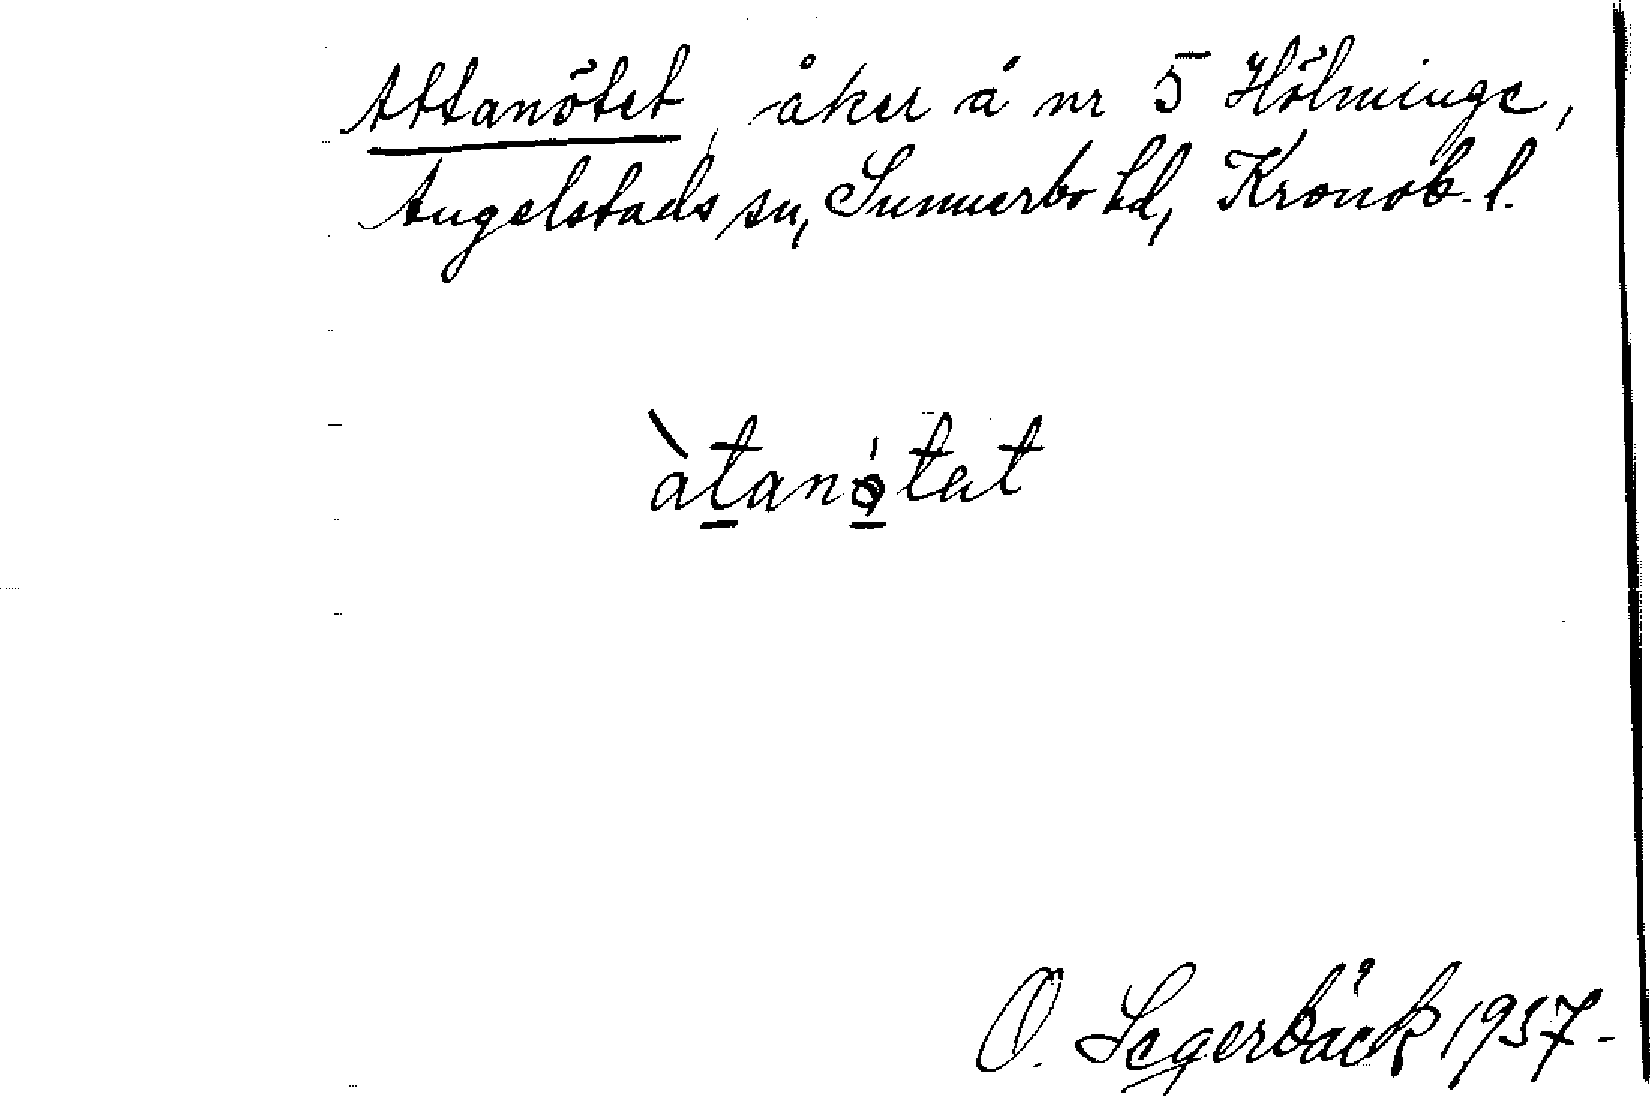 Attanötet, åker å nr 5 Hölminge,
Angelstads sn, Sunnerbo hd, Kronob. l.
àtanǫ́tat
O. Segerbäck 1957-